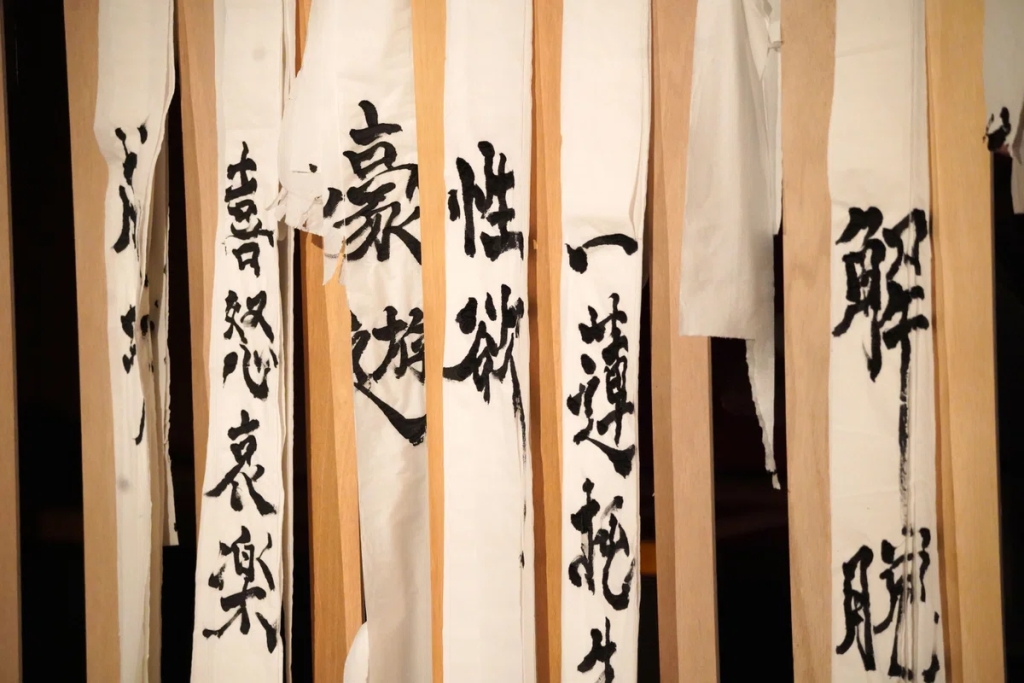 解脱
一蓮托生
性欲
豪遊
喜怒哀楽